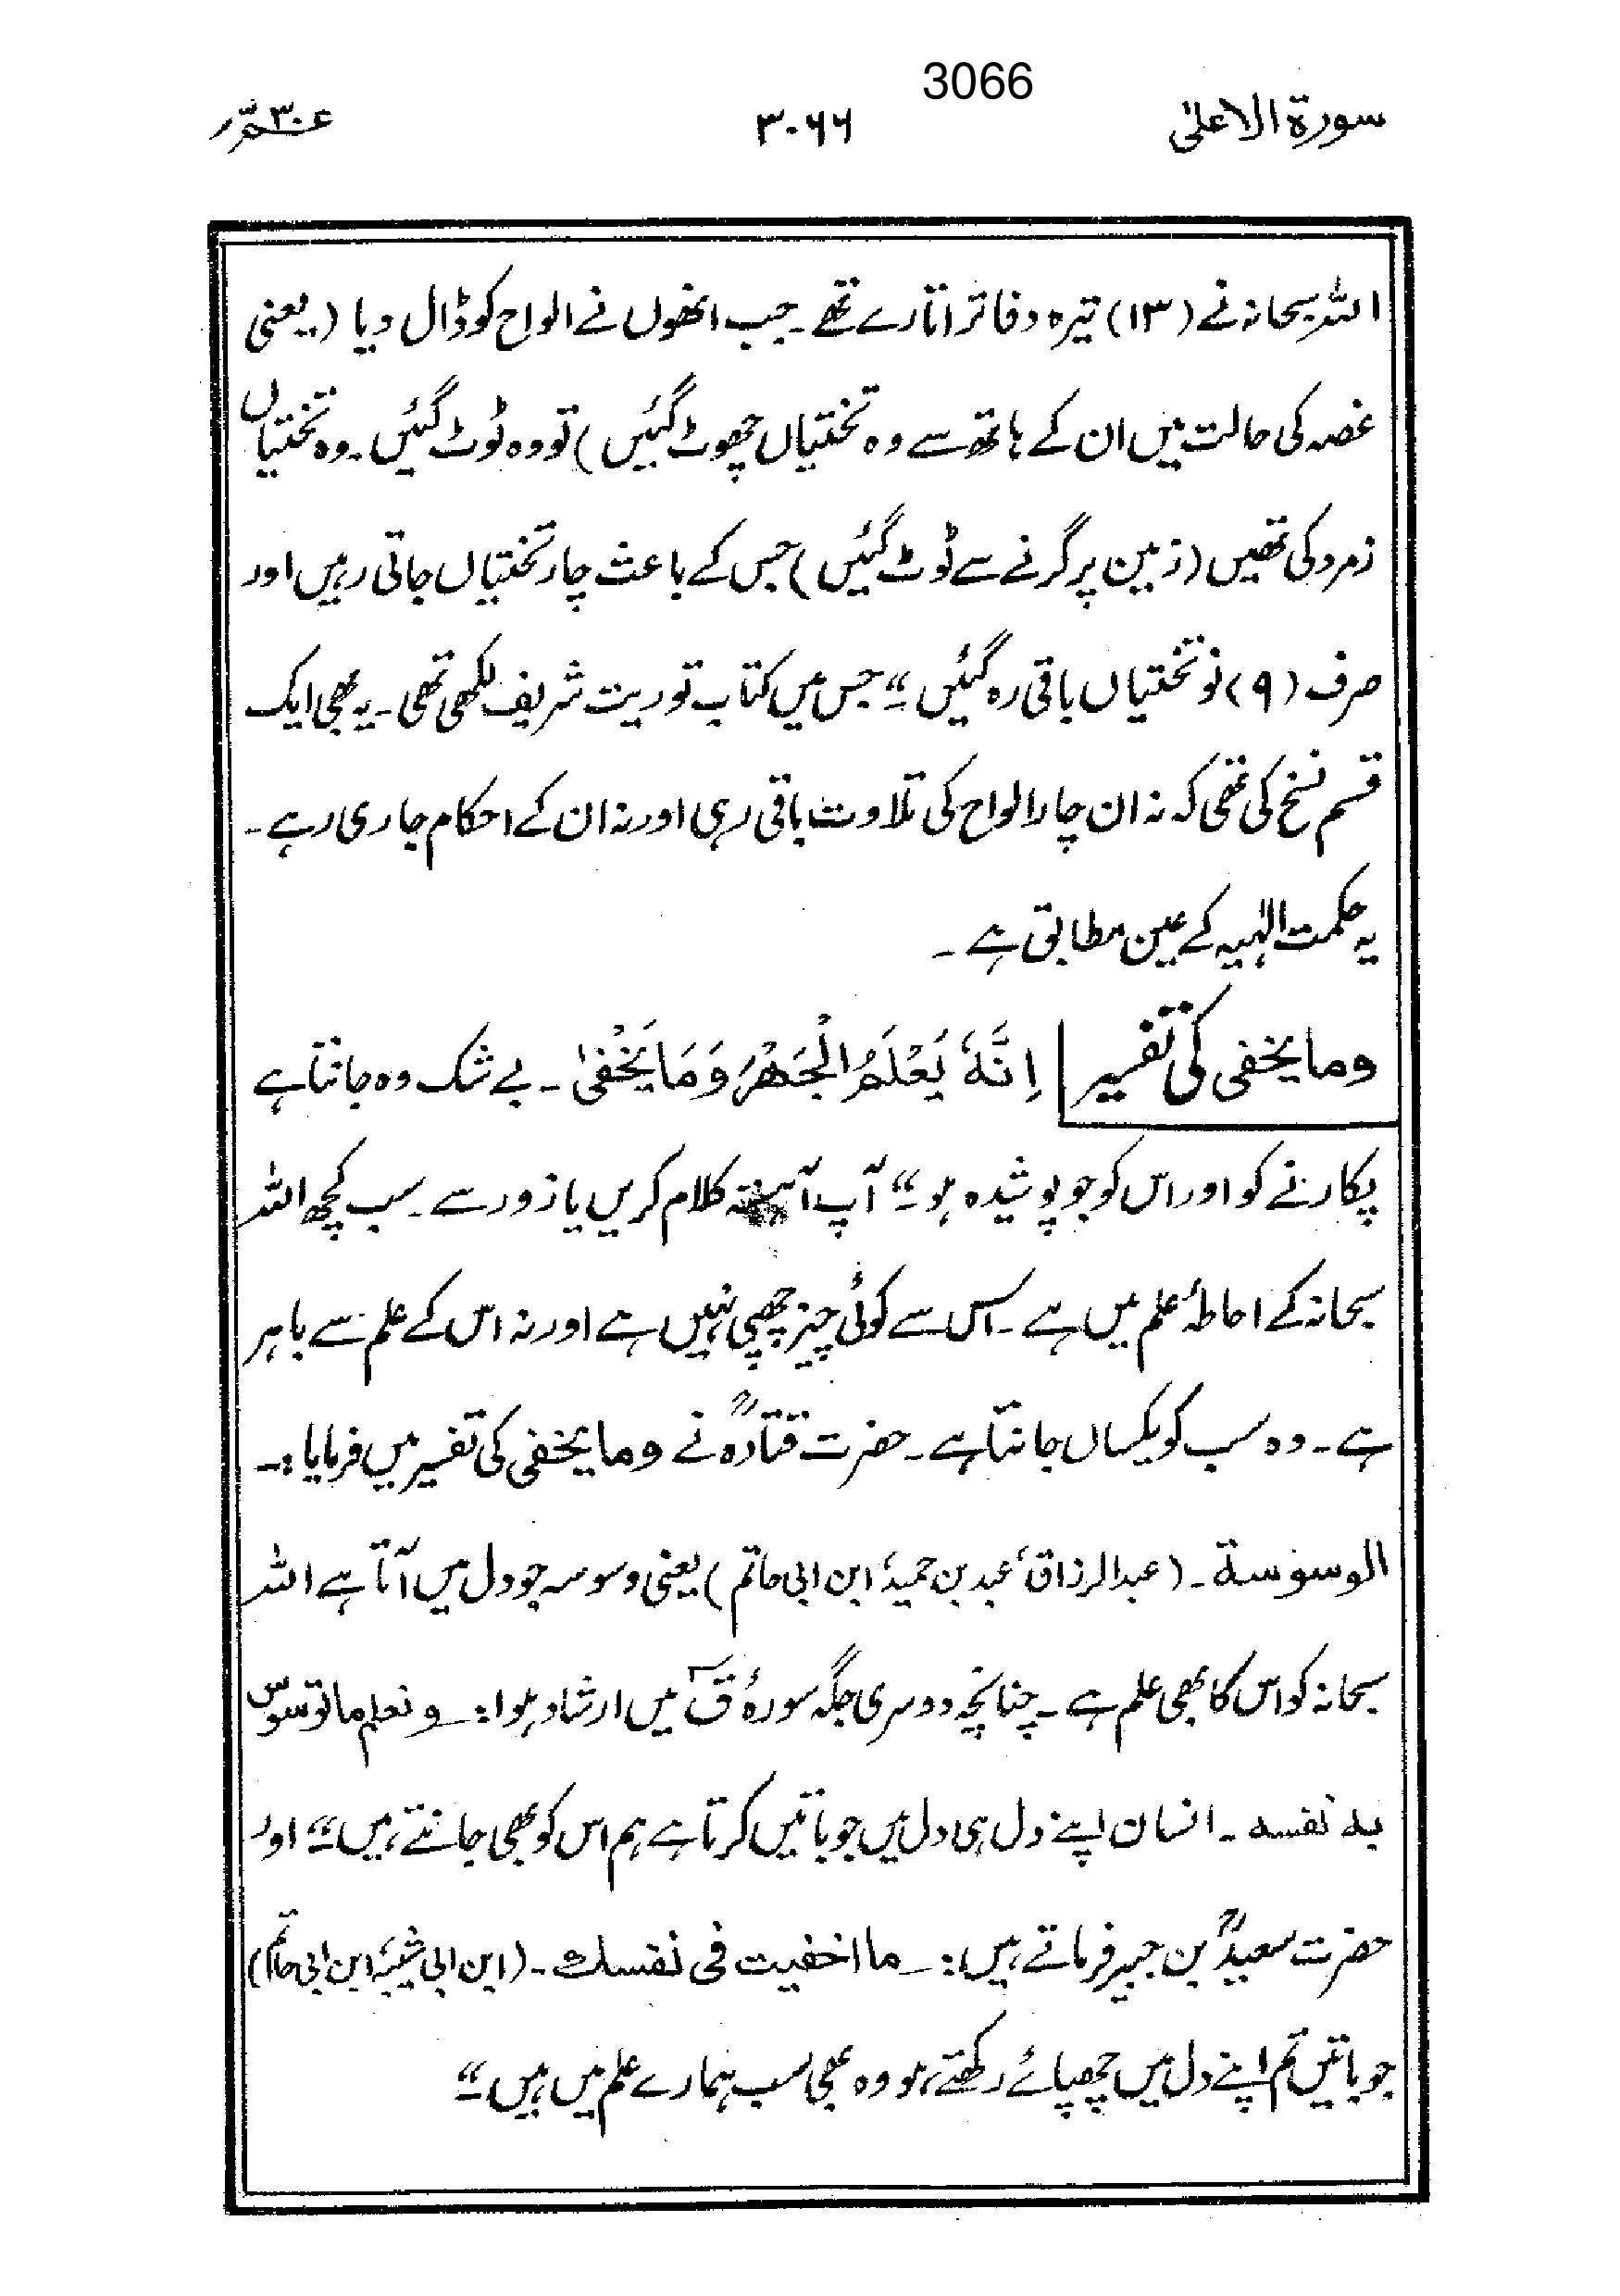 3066
سورۃ الاعلیٰ ۳۰۶۶ عمّ ۳۰
اللہ سبحانہ نے (۱۳) تیرہ دفاتر اتارے تھے۔ جب انھوں نے الواح کو ڈال دیا (یعنی
غصہ کی حالت میں ان کے ہاتھ سے وہ تختیاں چھوٹ گئیں) تو وہ ٹوٹ گئیں۔ وہ تختیاں
زمرد کی تھیں (زمین پر گرنے سے ٹوٹ گئیں) جس کے باعث چار تختیاں جاتی رہیں اور
صرف (۹) نو تختیاں باقی رہ گئیں ـ“ جس میں کتاب توریت شریف لکھی تھی۔ یہ بھی ایک
قسم نسخ کی تھی کہ نہ ان چار الواح کی تلاوت باقی رہی اور نہ ان کے احکام جاری رہے۔
یہ حکمت الٰہیہ کے عین مطابق ہے ۔
وما یخفی کی تفسیر اِنَّہٗ یَعْلَمُ الْجَھْرَ وَمَا یَخْفٰی ۔ بے شک وہ جانتا ہے
پکارنے کو اور اس کو جو پوشیدہ ہو ـ“ آپ آہستہ کلام کریں یا زور سے ۔ سب کچھ اللہ
سبحانہ کے احاطۂ علم میں ہے ۔ اس سے کوئی چیز چھپی نہیں ہے اور نہ اس کے علم سے باہر
ہے ۔ وہ سب کو یکساں جانتا ہے ۔ حضرت قتادہؒ نے وما یخفی کی تفسیر میں فرمایا :۔
الوسوسة ۔ (عبد الرزاق، عبد بن حمید، ابن ابی حاتم) یعنی وسوسہ جو دل میں آتا ہے اللہ
سبحانہ کو اس کا بھی علم ہے ۔ چنانچہ دوسری جگہ سورۂ قٓ میں ارشاد ہوا :۔ و نعلم ما توسوس
به نفسه ۔ انسان اپنے دل ہی دل میں جو باتیں کرتا ہے ہم اس کو بھی جانتے ہیں ـ“ اور
حضرت سعیدؒ بن جبیر فرماتے ہیں :۔ ما اخفیت فی نفسك ۔ (ابن ابی شیبہ، ابن ابی حاتم)
جو باتیں تم اپنے دل میں چھپائے رکھتے ہو وہ بھی سب ہمارے علم میں ہیں ـ“